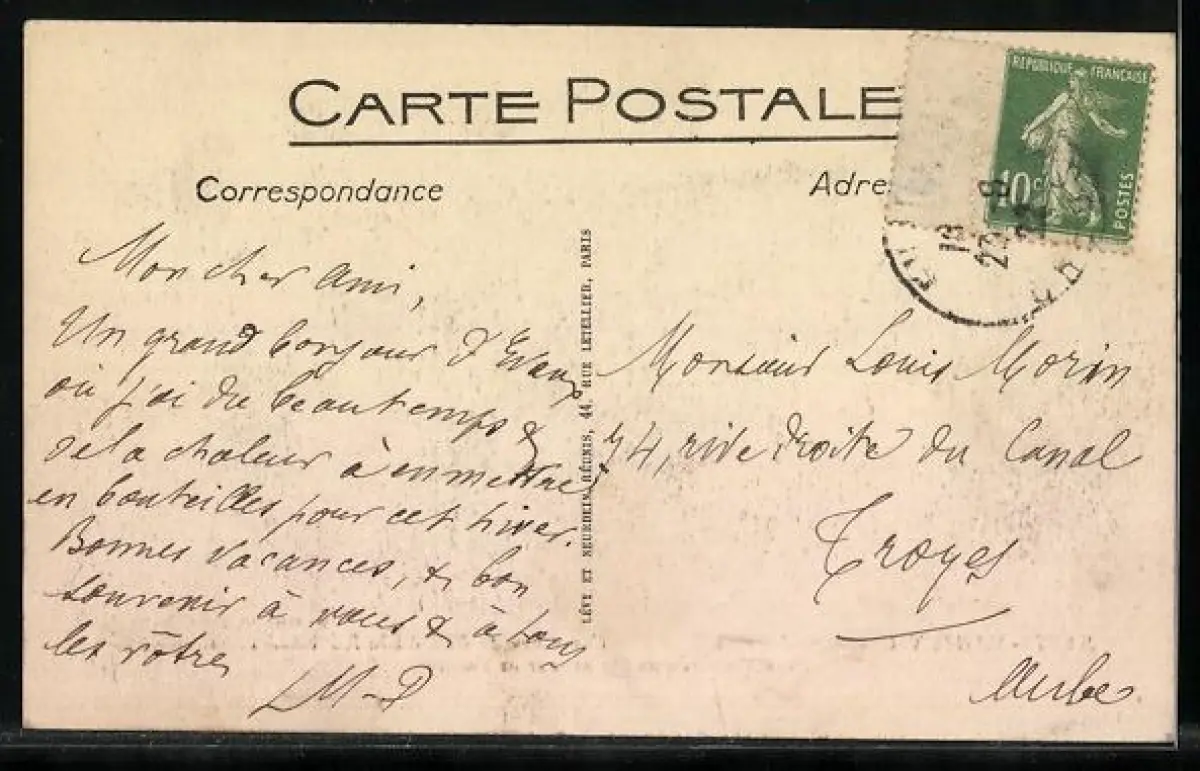 CARTE POSTALE
Correspondance
Adre
RÉPUBLIQUE FRANÇAISE
10 c
POSTES
Mon cher Ami,
Un grand bonjour d'Evaux
où j'ai du beau temps &
de la chaleur à en mettre
en bouteilles pour cet hiver.
Bonnes vacances, & bon
souvenir à vous & à tous
les vôtres
LÉVY ET NEURDEIN RÉUNIS, 44, RUE LETELLIER, PARIS
Monsieur Louis Morin
44, rive droite du Canal
Troyes
Aube